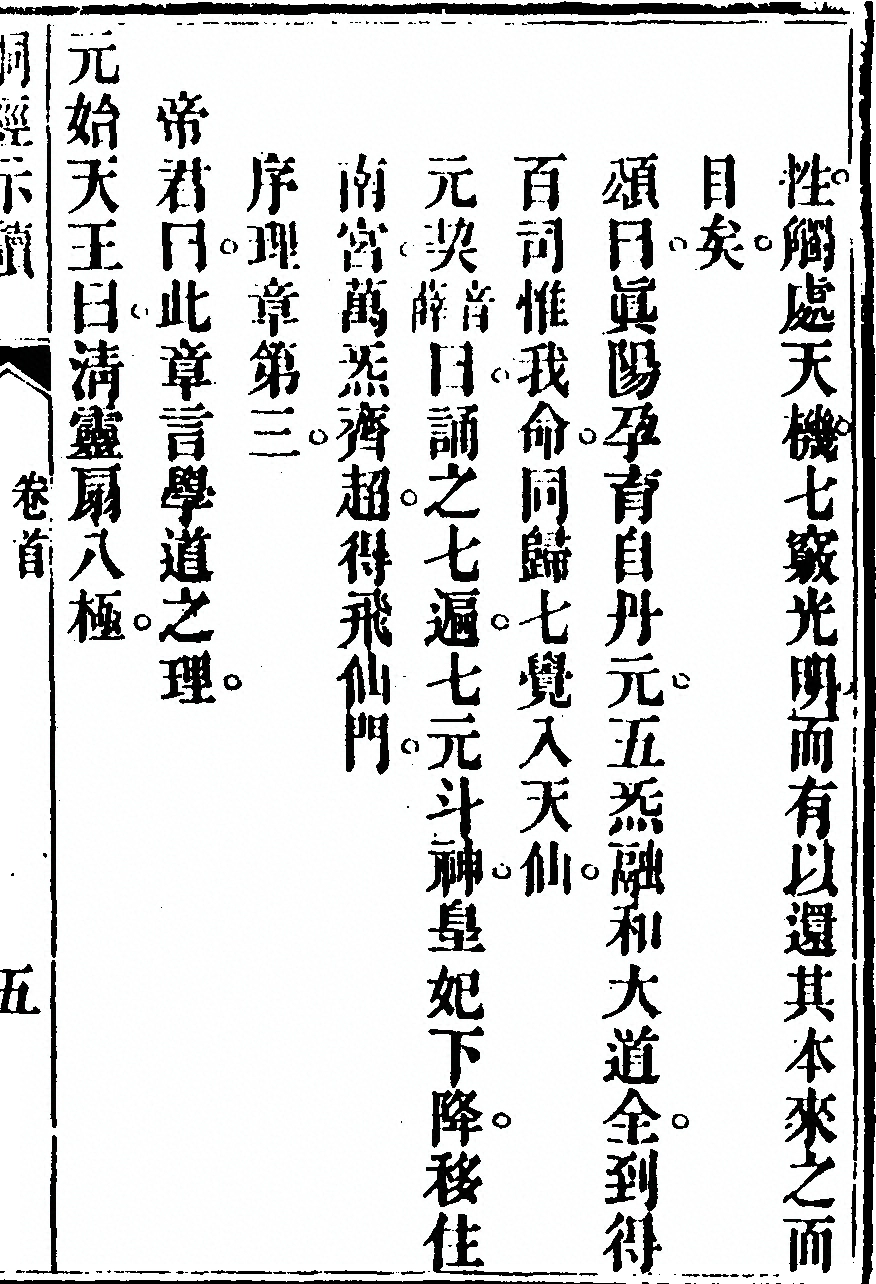 性。觸處天機。七竅光明、而有以還其本來之面
目矣。
頌曰。眞陽孕育自丹元。五炁融和大道全。到得
百司惟我命。同歸七覺入天仙。
元契音薛曰。誦之七遍。七元斗神。皇妃下降。移住
南宮。萬炁齊超。得飛仙門。
序理章第三。
帝君曰。此章言學道之理。
元始天王曰。清靈扇八極。
洞經示讀 卷首 五